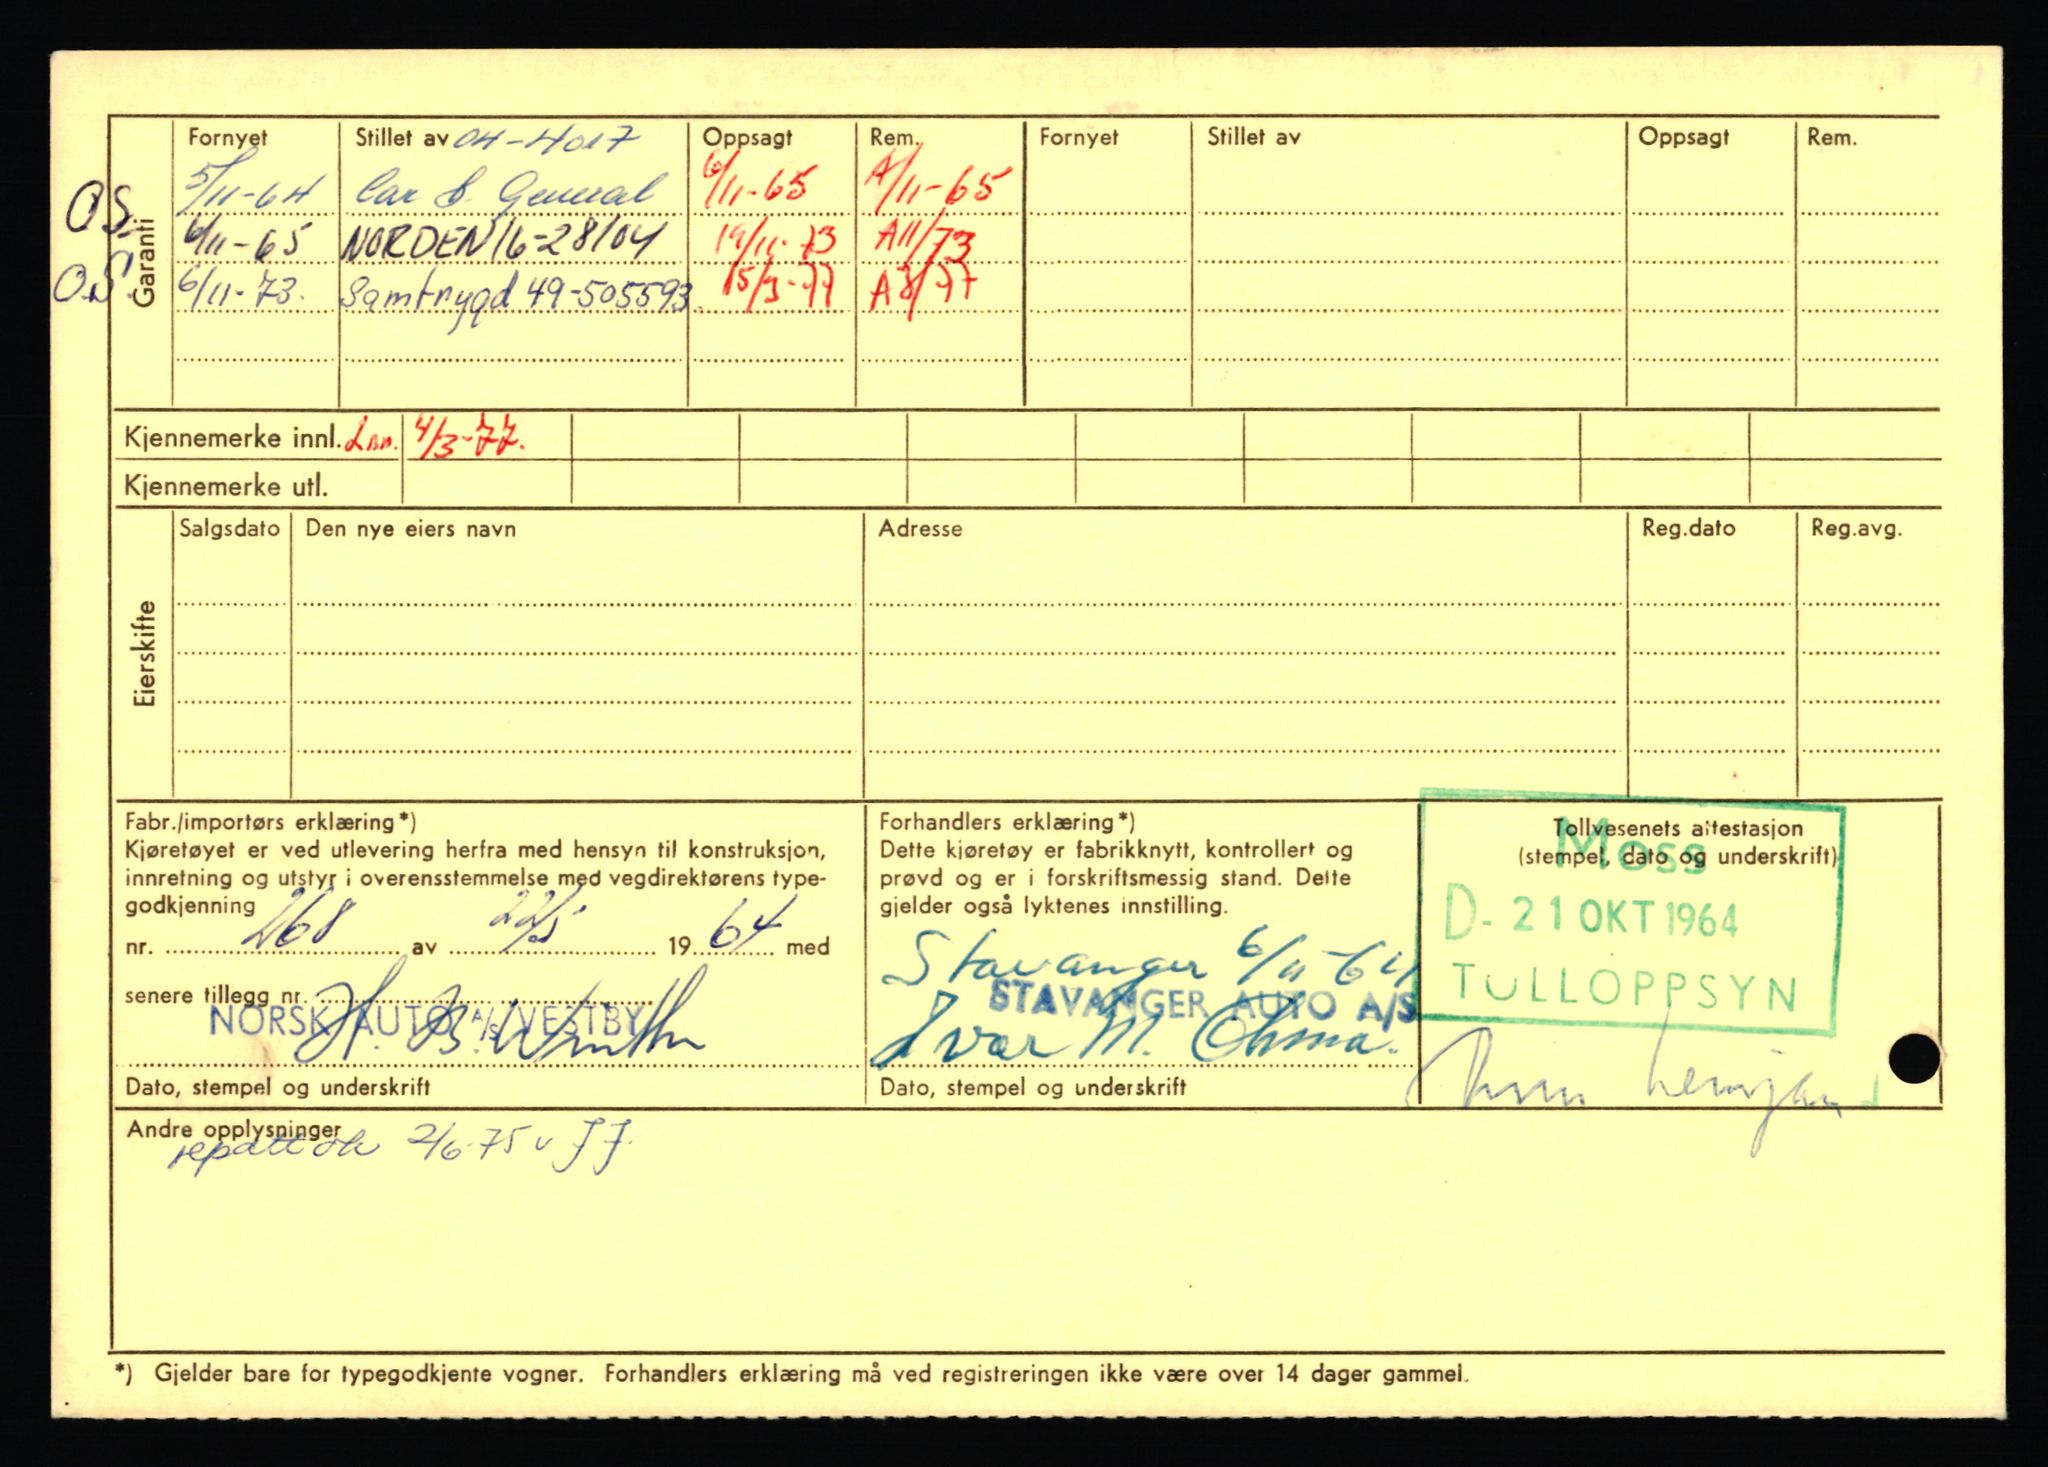 Garanti
Fornyet Stillet av 04-4017 Oppsagt Rem. Fornyet Stillet av Oppsagt Rem.
5/11-64 Car & General 6/11-65 A/11-65
OS. 6/11-65 NORDEN 16-28104 19/11-73 A11/73
O.S. 6/11-73. Samtrygd 49-505593. 15/3-77 A8/77
Kjennemerke innl. Inn. 4/3-77.
Kjennemerke utl.
Eierskifte
Salgsdato Den nye eiers navn Adresse Reg.dato Reg.avg.
Fabr./importørs erklæring*)
Kjøretøyet er ved utlevering herfra med hensyn til konstruksjon,
innretning og utstyr i overensstemmelse med vegdirektørens type-
godkjenning
nr. 268 av 22/5 1964 med
senere tillegg nr.
NORSK AUTO A/S VESTBY
Dato, stempel og underskrift
Forhandlers erklæring*)
Dette kjøretøy er fabrikknytt, kontrollert og
prøvd og er i forskriftsmessig stand. Dette
gjelder også lyktenes innstilling.
Stavanger 6/11-64
STAVANGER AUTO A/S
Ivar M.
Dato, stempel og underskrift
Tollvesenets attestasjon
(stempel, dato og underskrift)
Moss
D- 21 OKT 1964
TOLLOPPSYN
Andre opplysninger
repatt ok 2/6-75 v JJ.
*) Gjelder bare for typegodkjente vogner. Forhandlers erklæring må ved registreringen ikke være over 14 dager gammel.